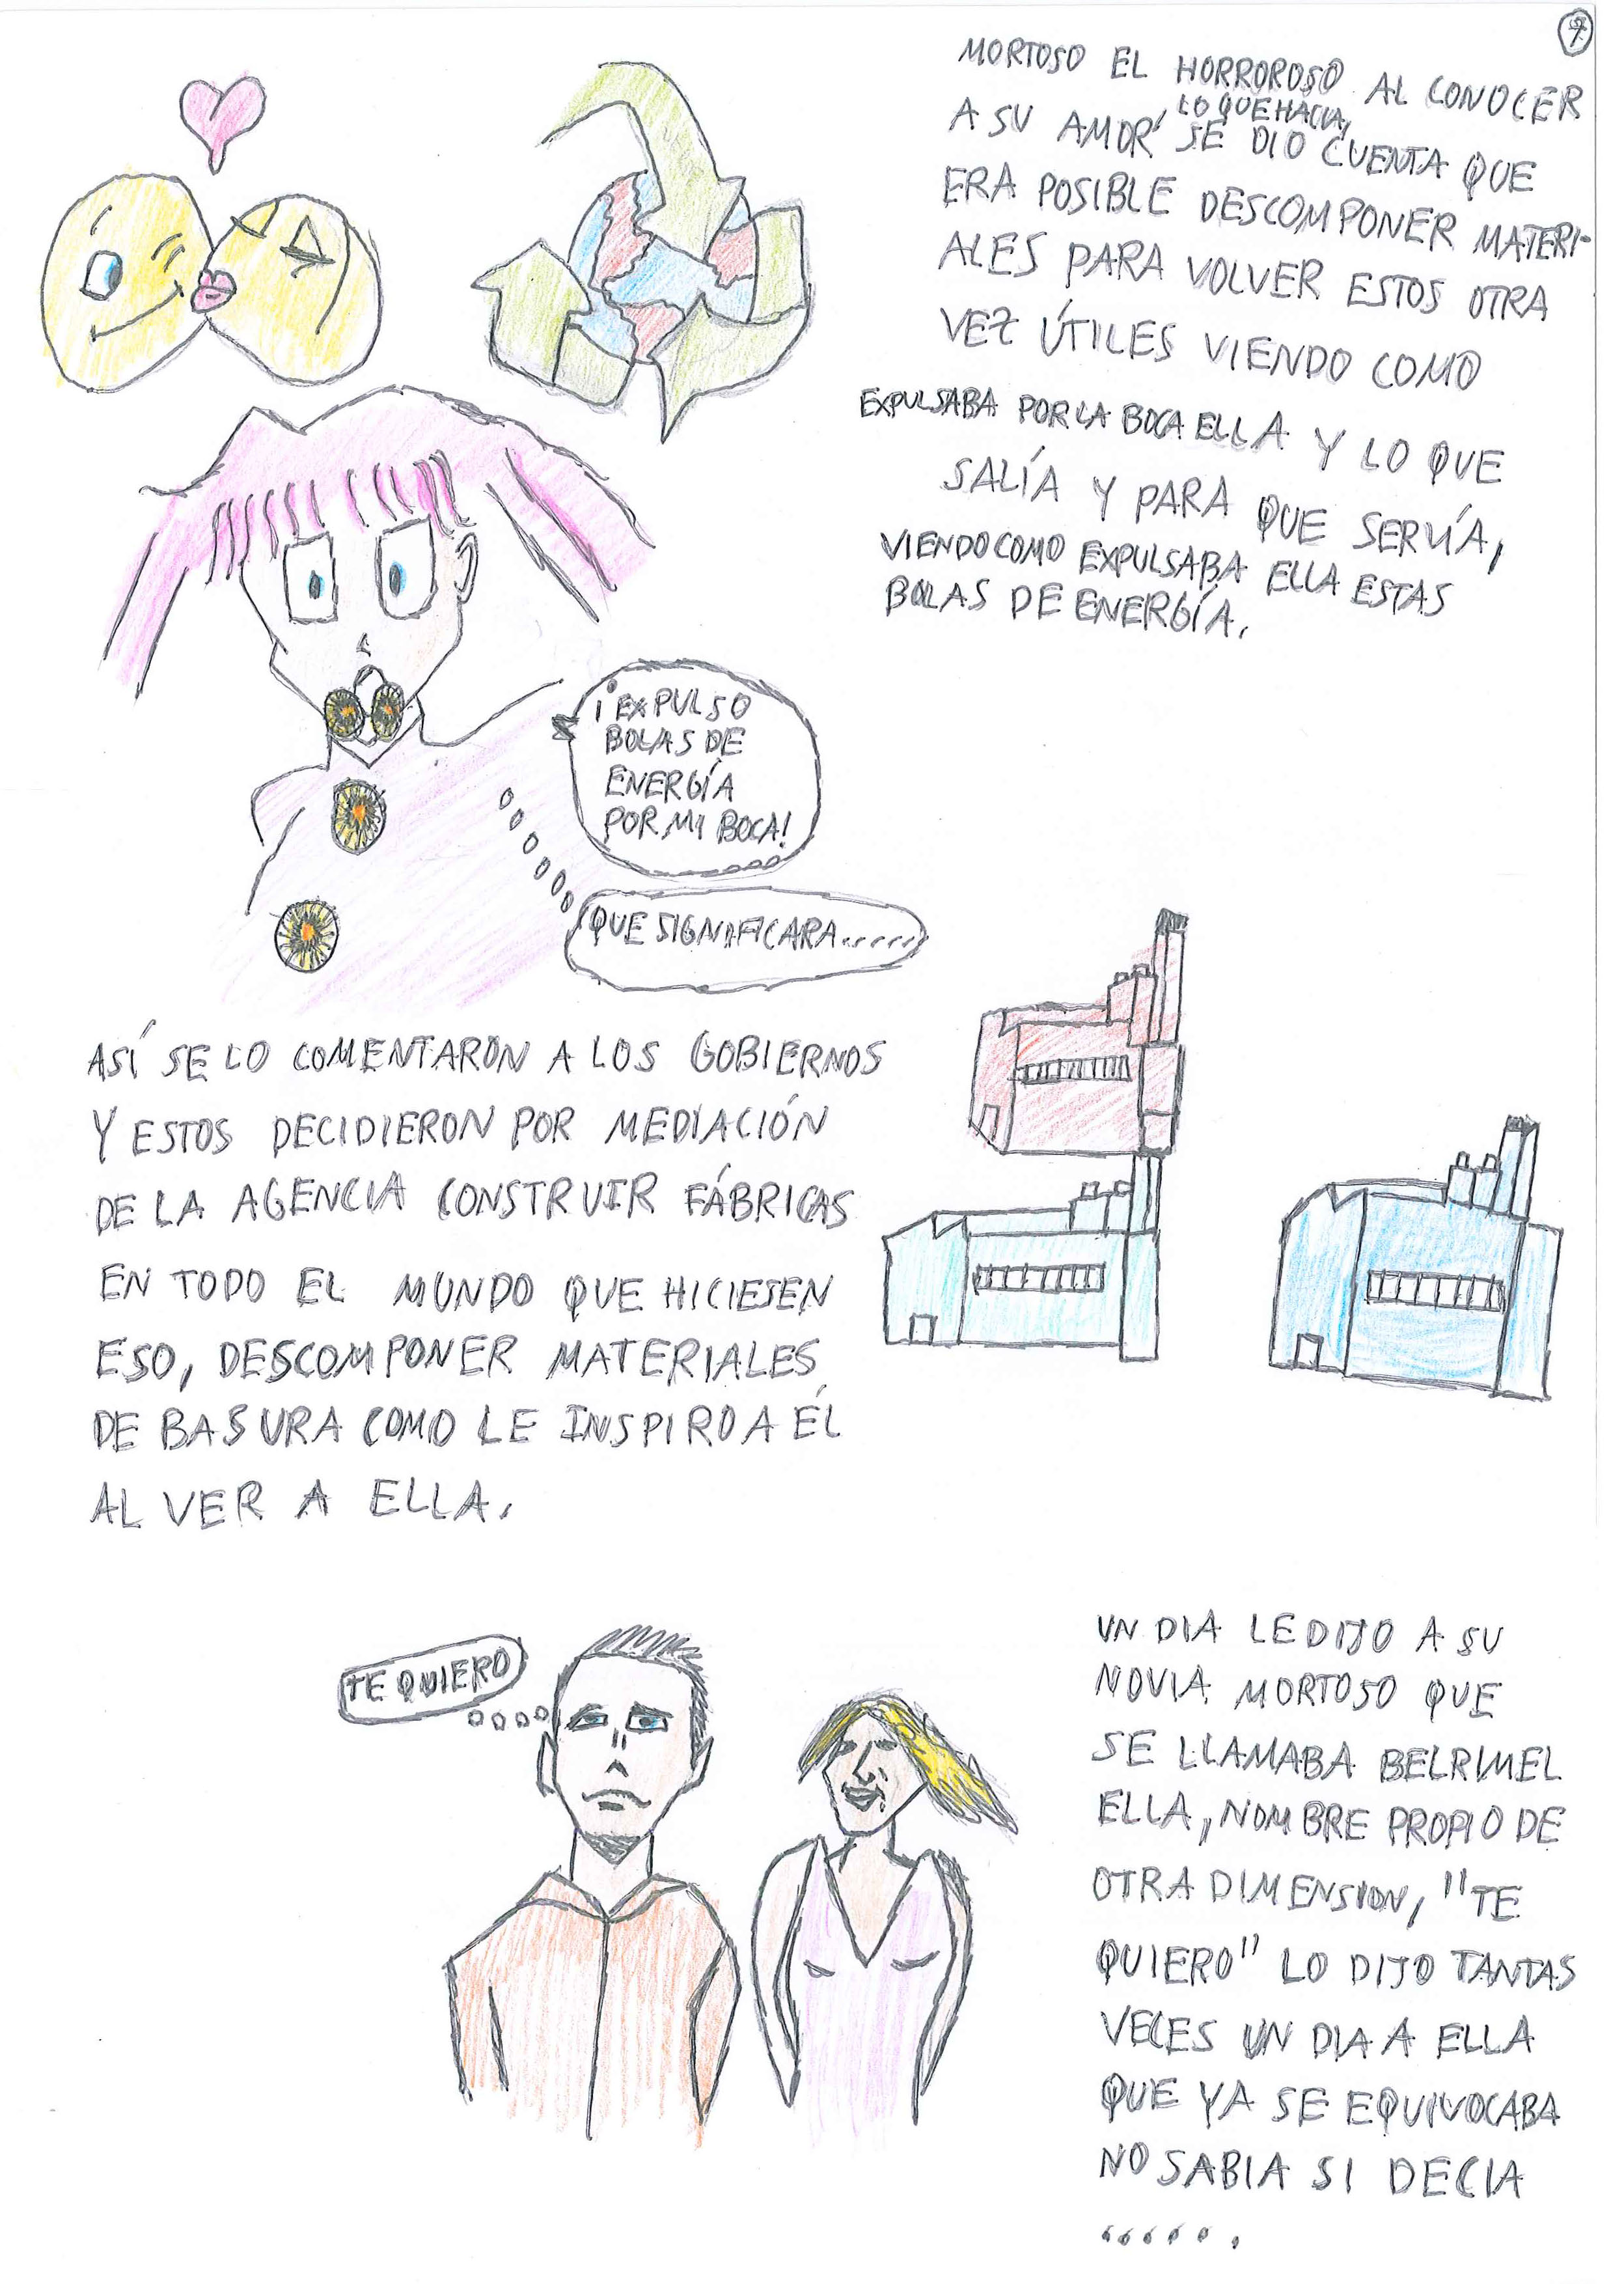 9
MORTOSO EL HORROROSO AL CONOCER
A SU AMOR, LO QUE HACIA, SE DIO CUENTA QUE
ERA POSIBLE DESCOMPONER MATERI-
ALES PARA VOLVER ESTOS OTRA
VEZ ÚTILES VIENDO COMO
EXPULSABA POR LA BOCA ELLA Y LO QUE
SALÍA Y PARA QUE SERVÍA,
VIENDO COMO EXPULSABA ELLA ESTAS
BOLAS DE ENERGÍA.
¡EXPULSO
BOLAS DE
ENERGÍA
POR MI BOCA!
QUE SIGNIFICARA......
ASÍ SE LO COMENTARON A LOS GOBIERNOS
Y ESTOS DECIDIERON POR MEDIACIÓN
DE LA AGENCIA CONSTRUIR FÁBRICAS
EN TODO EL MUNDO QUE HICIESEN
ESO, DESCOMPONER MATERIALES
DE BASURA COMO LE INSPIRO A ÉL
AL VER A ELLA.
TE QUIERO
UN DIA LE DIJO A SU
NOVIA MORTOSO QUE
SE LLAMABA BELRIMEL
ELLA, NOMBRE PROPIO DE
OTRA DIMENSION, "TE
QUIERO" LO DIJO TANTAS
VECES UN DIA A ELLA
QUE YA SE EQUIVOCABA
NO SABIA SI DECIA
......